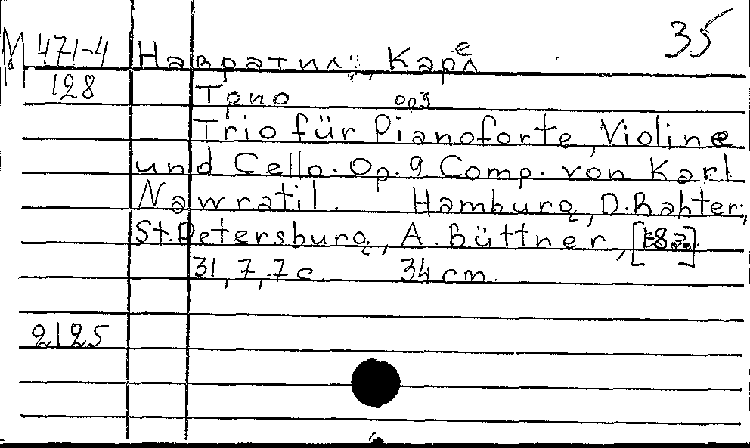 35
М 471-4 Навратил, Карел
128 Трио op9
Trio für Pianoforte, Violine
und Cello. Op. 9 Comp. von Karl
Nawratil. Hamburg, D. Rahter,
St. Petersburg, A. Büttner,
31, 7, 7 c. 34 cm.
2125